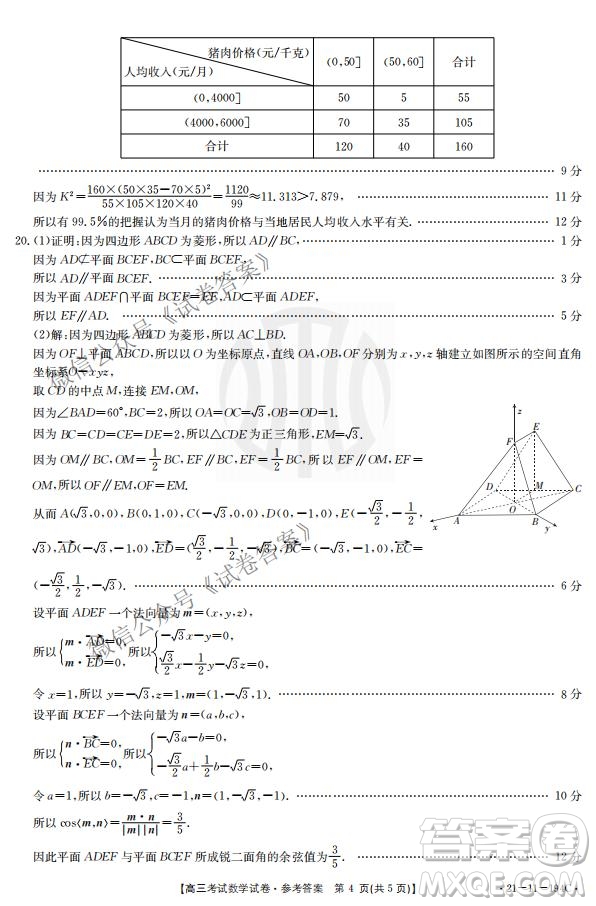 猪肉价格(元/千克) (0,50] (50,60] 合计
人均收入(元/月)
(0,4000] 50 5 55
(4000,6000] 70 35 105
合计 120 40 160
9 分
因为 K²=160×(50×35−70×5)²/(55×105×120×40)=1120/99≈11.313>7.879, 11 分
所以有 99.5%的把握认为当月的猪肉价格与当地居民人均收入水平有关. 12 分
20.(1)证明:因为四边形 ABCD 为菱形,所以 AD∥BC, 1 分
因为 AD⊄平面 BCEF,BC⊂平面 BCEF,
所以 AD∥平面 BCEF. 3 分
因为平面 ADEF∩平面 BCEF=EF,AD⊂平面 ADEF,
所以 EF∥AD. 5 分
(2)解:因为四边形 ABCD 为菱形,所以 AC⊥BD.
因为 OF⊥平面 ABCD,所以以 O 为坐标原点,直线 OA,OB,OF 分别为 x,y,z 轴建立如图所示的空间直角
坐标系O−xyz,
取 CD 的中点 M,连接 EM,OM,
因为∠BAD=60°,BC=2,所以 OA=OC=√3,OB=OD=1.
因为 BC=CD=CE=DE=2,所以△CDE 为正三角形,EM=√3.
因为 OM∥BC,OM=1/2 BC,EF∥BC,EF=1/2 BC,所以 EF∥OM,EF=
OM,所以 OF∥EM,OF=EM.
从而 A(√3,0,0),B(0,1,0),C(−√3,0,0),D(0,−1,0),E(−√3/2,−1/2,
√3),AD=(−√3,−1,0),ED=(√3/2,−1/2,−√3),BC=(−√3,−1,0),EC=
(−√3/2,1/2,−√3). 6 分
设平面 ADEF 一个法向量为 m=(x,y,z),
所以{m·AD=0, m·ED=0, 所以{−√3x−y=0, √3/2 x−1/2 y−√3z=0,
令 x=1,所以 y=−√3,z=1,m=(1,−√3,1). 8 分
设平面 BCEF 一个法向量为 n=(a,b,c),
所以{n·BC=0, n·EC=0, 所以{−√3a−b=0, −√3/2 a+1/2 b−√3c=0,
令 a=1,所以 b=−√3,c=−1,n=(1,−√3,−1). 10 分
所以 cos⟨m,n⟩=m·n/|m||n|=3/5.
因此平面 ADEF 与平面 BCEF 所成锐二面角的余弦值为3/5. 12 分
z
F
E
D
M
C
O
A
B
x
y
【高三考试数学试卷·参考答案 第 4 页(共 5 页)】
微信公众号《试卷答案》
微信公众号《试卷答案》
答案圈